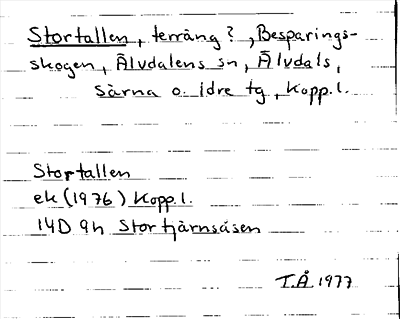 Stortallen, terräng?, Besparings-
skogen, Älvdalens sn, Älvdals,
Särna o. idre tg, Kopp.l.
Stortallen
ek (1976) Kopp.l.
14D 9h Stortjärnsåsen
T.Å 1977